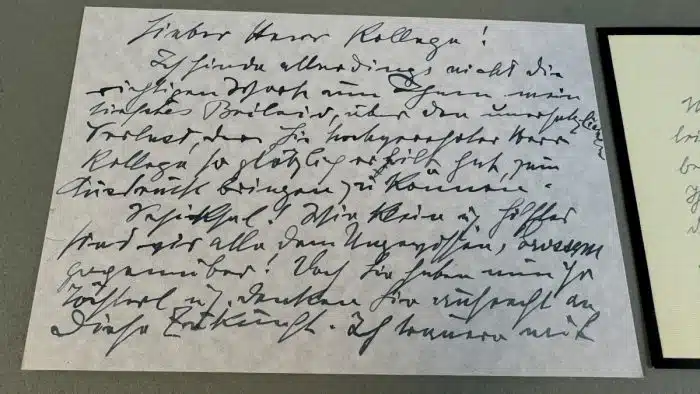 Lieber Herr Kollege!
Ich finde allerdings nicht die
richtigen Worte um Ihnen mein
tiefstes Beileid, über den unersetzlichen
Verlust, den Sie hochverehrter Herr
Kollege so plötzlich ereilt hat, zum
Ausdruck bringen zu können.
Schicksal! Wie klein u. hilflos
sind wir alle dem Grossem
gegenüber! Doch Sie haben nun Ihr
Töchterl u. denken Sie aufrecht an
diese Zukunft. Ich trauere mit